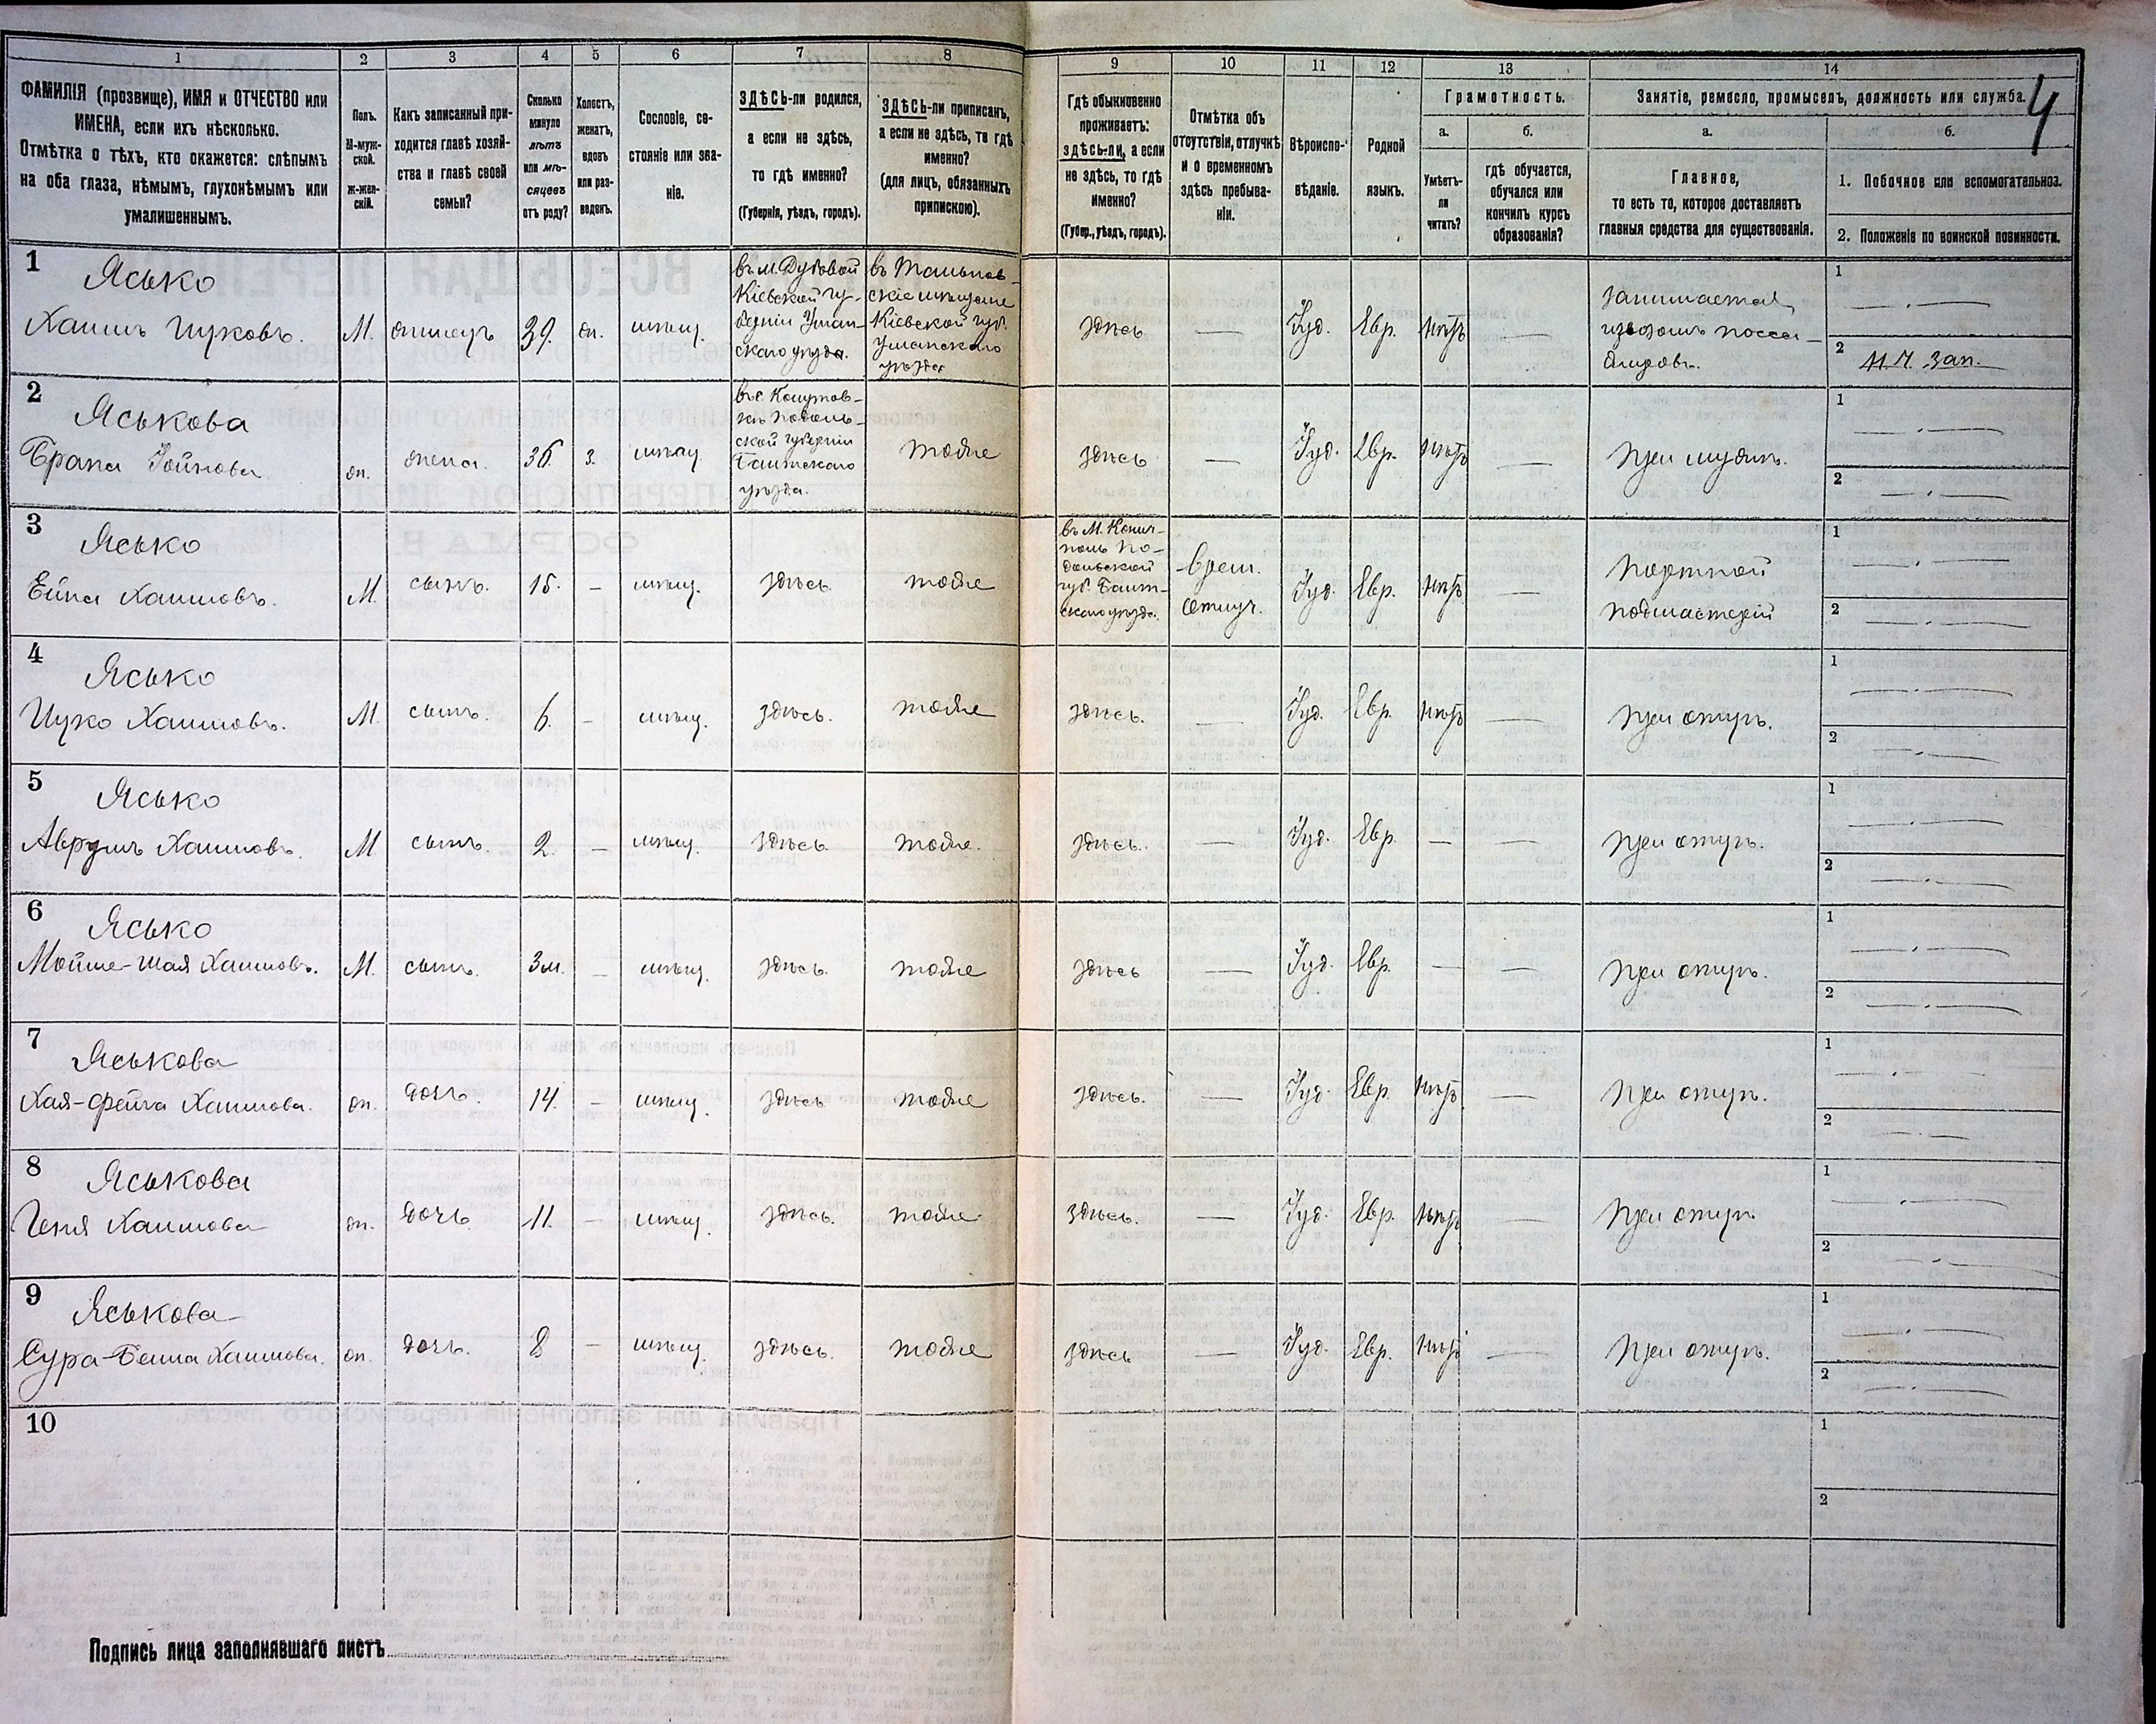 1 2 3 4 5 6 7 8 9 10 11 12 13 14
4
ФАМИЛІЯ (прозвище), ИМЯ и ОТЧЕСТВО или
ИМЕНА, если ихъ нѣсколько.
Отмѣтка о тѣхъ, кто окажется: слѣпымъ
на оба глаза, нѣмымъ, глухонѣмымъ или
умалишеннымъ.
Полъ.
М-муж-
ской.
ж-жен-
скій.
Какъ записанный при-
ходится главѣ хозяй-
ства и главѣ своей
семьи?
Сколько
минуло
лѣтъ
или мѣ-
сяцевъ
отъ роду?
Холостъ,
женатъ,
вдовъ
или раз-
веденъ.
Сословіе, со-
стояніе или зва-
ніе.
ЗДѢСЬ-ли родился,
а если не здѣсь,
то гдѣ именно?
(Губернія, уѣздъ, городъ).
ЗДѢСЬ-ли приписанъ,
а если не здѣсь, то гдѣ
именно?
(для лицъ, обязанныхъ
припискою).
Гдѣ обыкновенно
проживаетъ:
здѣсь-ли, а если
не здѣсь, то гдѣ
именно?
(Губер., уѣздъ, городъ).
Отмѣтка объ
отсутствіи, отлучкѣ
и о временномъ
здѣсь пребыва-
ніи.
Вѣроиспо-
вѣданіе.
Родной
языкъ.
Грамотность.
а.
Умѣетъ-
ли
читать?
б.
гдѣ обучается,
обучался или
кончилъ курсъ
образованія?
Занятіе, ремесло, промыселъ, должность или служба.
а.
Главное,
то есть то, которое доставляетъ
главныя средства для существованія.
б.
1. Побочное или вспомогательное.
2. Положеніе по воинской повинности.
1
Ясько
Хаимъ Ицковъ. М. 39. мѣщ.
въ м. Дубовой
Кіевской гу-
берніи Уман-
скаго уѣзда.
въ Тальнов-
скіе мѣщане
Кіевской губ.
Уманскаго
уѣзда
здѣсь — Іуд. Евр. нѣтъ —
занимается
извозомъ пасса-
жировъ.
1
2
2
Яськова
ж. жена. 36. з. мѣщ.
Подоль-
ской губерніи
Балтскаго
уѣзда.
тоже здѣсь — Іуд. Евр. нѣтъ — при мужѣ.
1
2
3
Ясько
Хаимовъ. М. сынъ. 15. – мѣщ. здѣсь. тоже
Балт-
скаго уѣзда.
врем.
отлуч.
Іуд. Евр. нѣтъ —
портной
подмастерій
1
2
4
Ясько
Ицко Хаимовъ. М. сынъ. 6. – мѣщ. здѣсь. тоже здѣсь. — Іуд. Евр. нѣтъ — при отцѣ.
1
2
5
Ясько
Аврумъ Хаимовъ. М сынъ. 2. – мѣщ. здѣсь. тоже. здѣсь. — Іуд. Евр. — — при отцѣ.
1
2
6
Ясько
Мойше-Шая Хаимовъ. М. сынъ. 3 м. – мѣщ. здѣсь. тоже здѣсь — Іуд. Евр. — — при отцѣ.
1
2
7
Яськова
Хая-Фейга Хаимова. ж. дочь. 14. – мѣщ. здѣсь тоже здѣсь. — Іуд. Евр. нѣтъ — при отцѣ.
1
2
8
Яськова
Геня Хаимова ж. дочь. 11. – мѣщ. здѣсь. тоже здѣсь. — Іуд. Евр. нѣтъ — при отцѣ
1
2
9
Яськова
Сура-Бейла Хаимова. ж. дочь. 8 – мѣщ. здѣсь. тоже здѣсь — Іуд. Евр. нѣтъ — при отцѣ.
1
2
10
1
2
Подпись лица заполнявшаго листъ